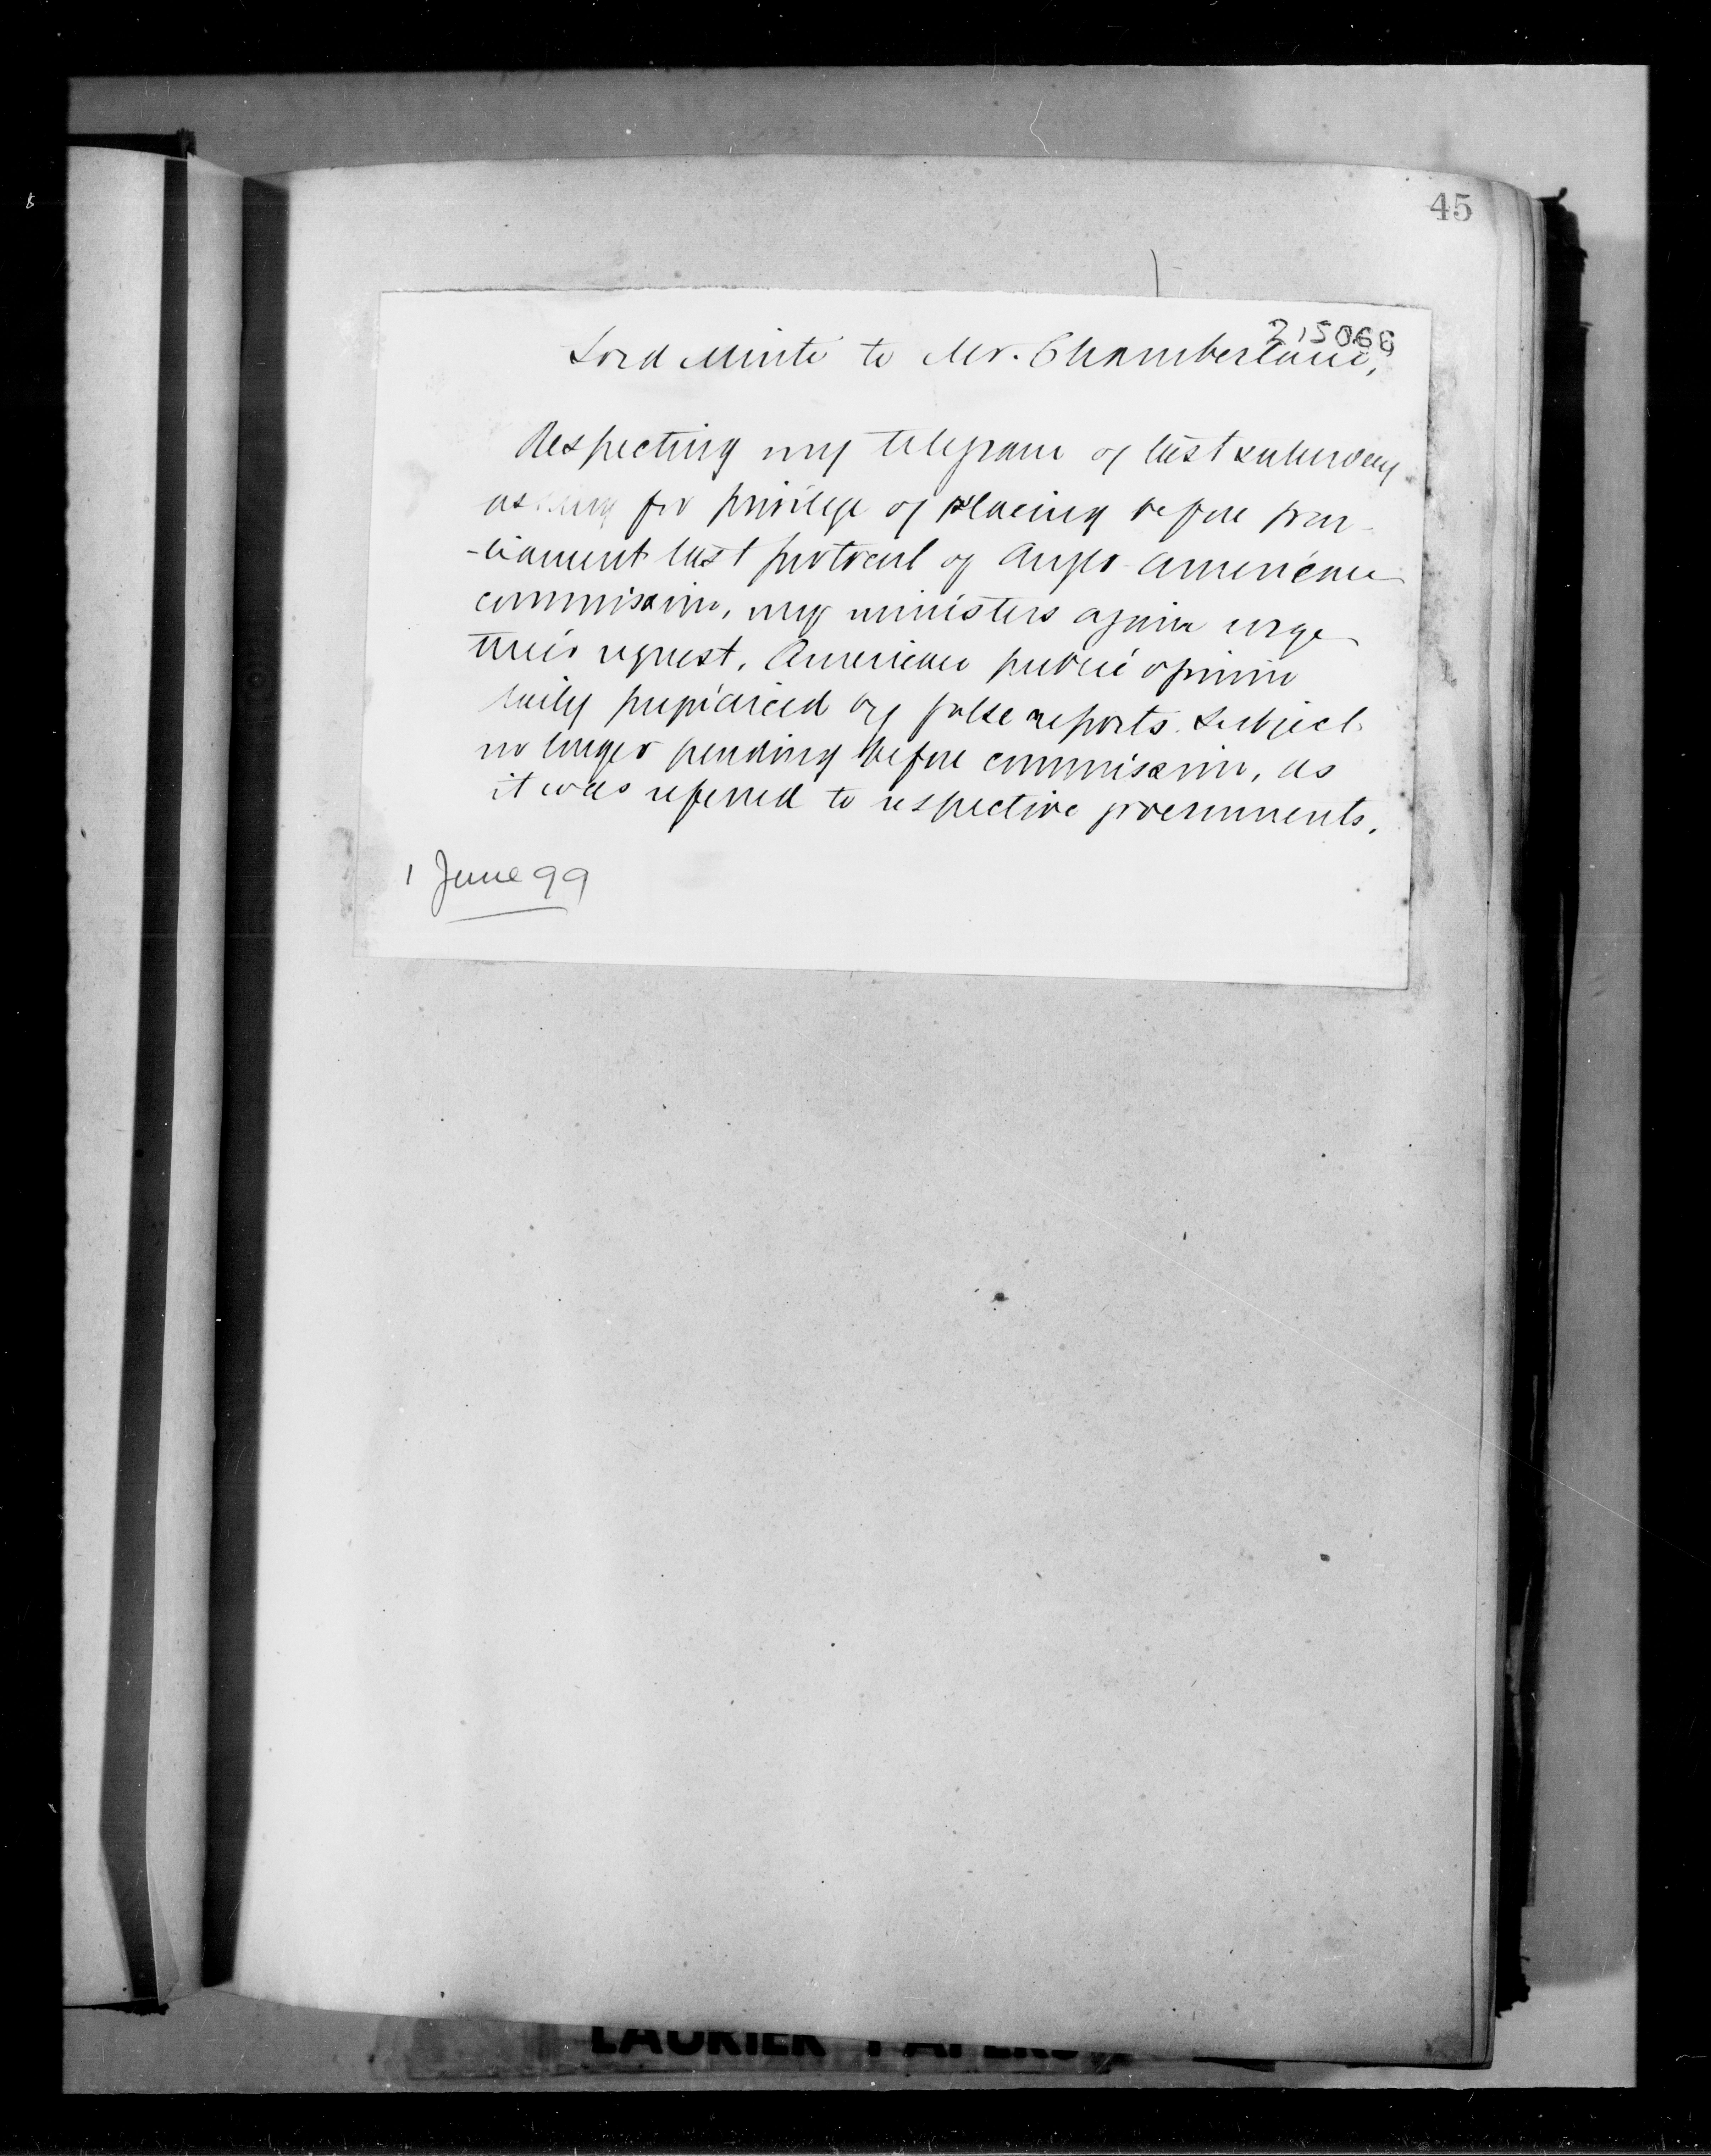 45
215066
Lord Minto to Mr. Chamberlain,
Respecting my telegram of last saturday
asking for privilege of placing before par-
-liament last protocol of Anglo-American
commission, my ministers again urge
their request. American public opinion
daily prejudiced by false reports. Subject
no longer pending before commission, as
it was referred to respective governments.
1 June 99
LAURIER PAPERS